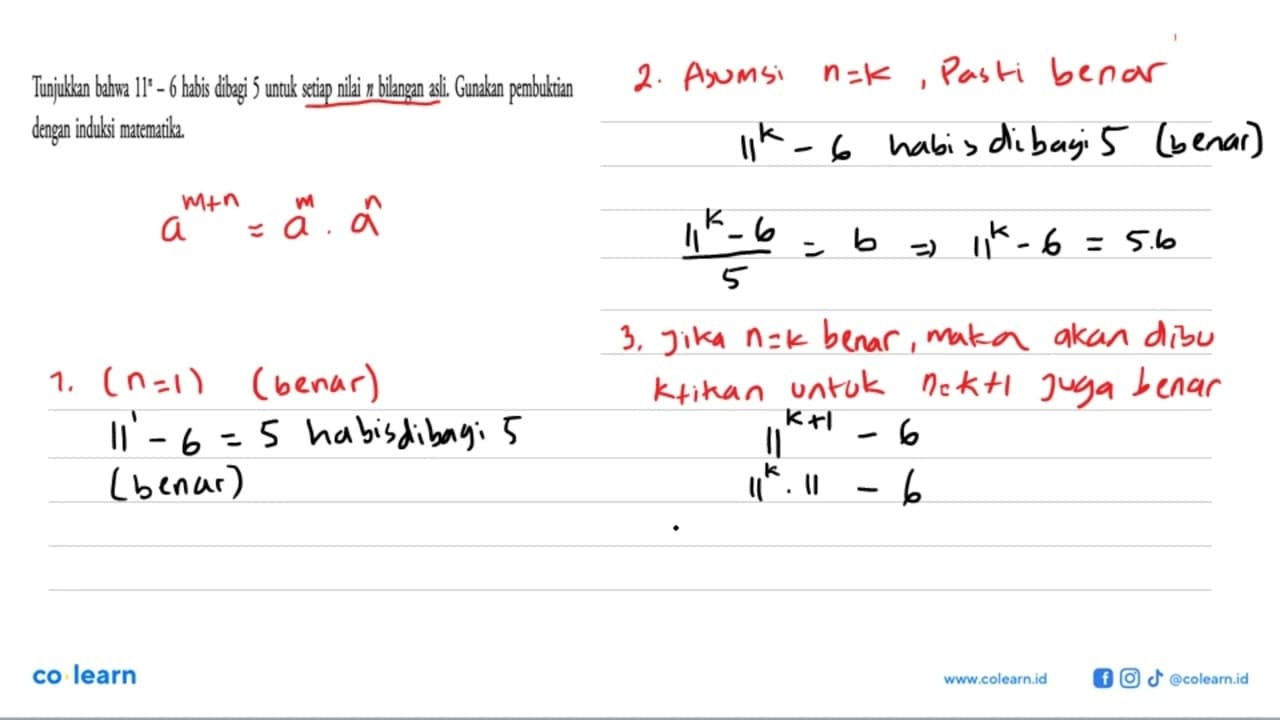 Tunjukkan bahwa 11ⁿ – 6 habis dibagi 5 untuk setiap nilai n bilangan asli. Gunakan pembuktian
dengan induksi matematika.
a^{m+n} = a^m . a^n
1. (n=1) (benar)
11^1 - 6 = 5 habis dibagi 5
(benar)
2. Asumsi n=k, Pasti benar
11^k - 6 habis dibagi 5 (benar)
\frac{11^k - 6}{5} = b ⇒ 11^k - 6 = 5.b
3. Jika n=k benar, maka akan dibu
ktikan untuk n=k+1 juga benar
11^{k+1} - 6
11^k . 11 - 6
co learn
www.colearn.id
@colearn.id